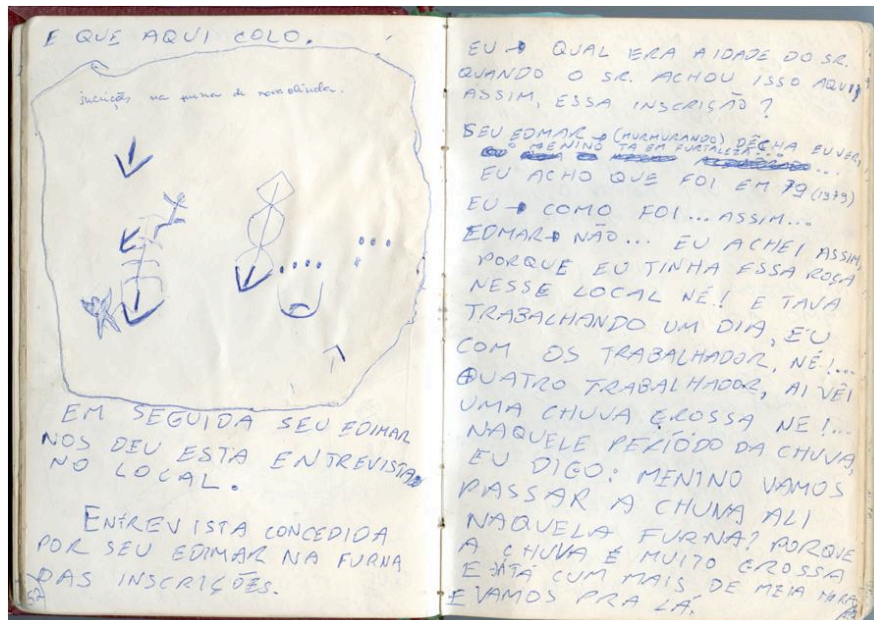 E QUE AQUI COLO.
inscrições na furna de nova olinda.
EM SEGUIDA SEU EDIMAR
NOS DEU ESTA ENTREVISTA
NO LOCAL.
ENTREVISTA CONCEDIDA
POR SEU EDIMAR NA FURNA
DAS INSCRIÇÕES.
EU → QUAL ERA A IDADE DO SR.
QUANDO O SR. ACHOU ISSO AQUI,
ASSIM, ESSA INSCRIÇÃO?
SEU EDMAR → (MURMURANDO) DÊCHA EU VER,
O MENINO TA EM FURTALEZA...
EU ACHO QUE FOI EM 79 (1979)
EU → COMO FOI... ASSIM...
EDMAR → NÃO... EU ACHEI ASSIM,
PORQUE EU TINHA ESSA ROÇA
NESSE LOCAL NÉ! E TAVA
TRABALHANDO UM DIA, EU
COM OS TRABALHADOR, NÉ!...
QUATRO TRABALHADOR, AI VÊI
UMA CHUVA GROSSA NÉ!...
NAQUELE PERÍODO DA CHUVA,
EU DIGO: MENINO VAMOS
PASSAR A CHUVA ALI
NAQUELA FURNA? PORQUE
A CHUVA É MUITO GROSSA
E TÁ CUM MAIS DE MEIA HORA
E VAMOS PRA LÁ.